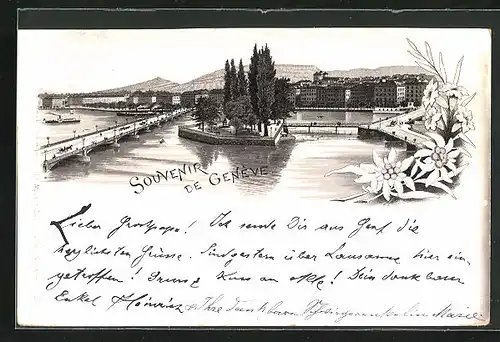 SOUVENIR
DE GENÈVE
Lieber Grosspapa! Ich sende Dir aus Genf die
herzlichsten Grüsse. Sind gestern über Lausanne hier ein-
getroffen! Gruss & Kuss an alle! Dein dankbarer
Enkel Heinrich & Ihre dankbare Marie